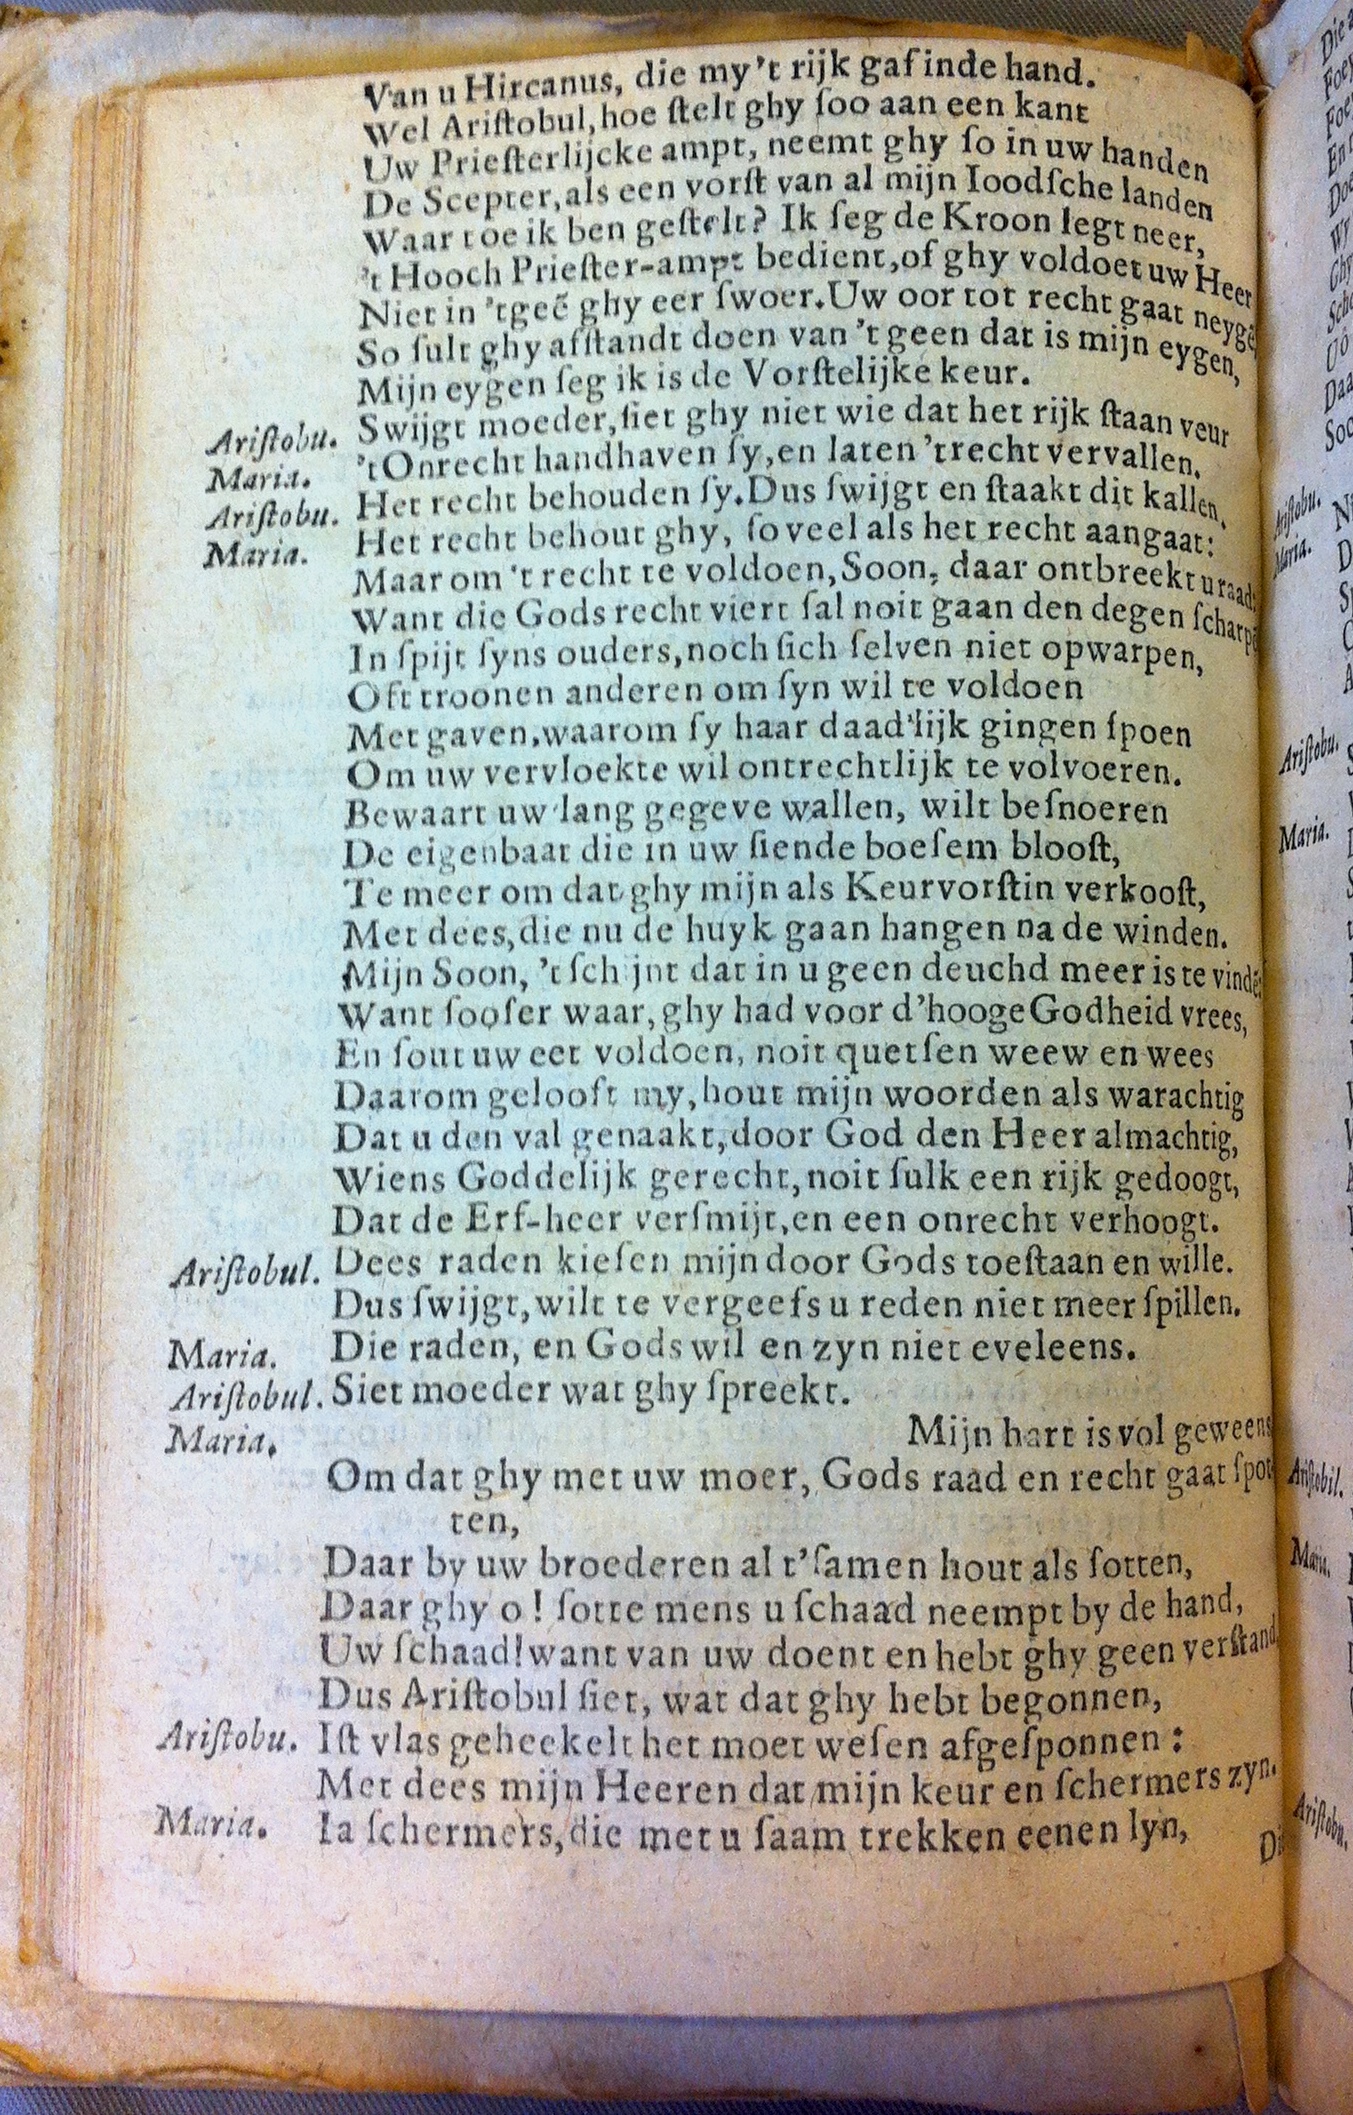 Van u Hircanus, die my 't rijk gaf inde hand.
Wel Ariſtobul, hoe ſtelt ghy ſoo aan een kant
Uw Prieſterlijcke ampt, neemt ghy ſo in uw handen
De Scepter, als een vorſt van al mijn Ioodſche landen
Waar toe ik ben geſtelt? Ik ſeg de Kroon legt neer,
't Hooch Prieſter-ampt bedient, of ghy voldoet uw Heer
Niet in 'tgeē ghy eer ſwoer. Uw oor tot recht gaat neygē
So ſult ghy afſtandt doen van 't geen dat is mijn eygen,
Mijn eygen ſeg ik is de Vorſtelijke keur.
Ariſtobu. Swijgt moeder, ſiet ghy niet wie dat het rijk ſtaan veur
Maria. 't Onrecht handhaven ſy, en laten 't recht vervallen.
Ariſtobu. Het recht behouden ſy. Dus ſwijgt en ſtaakt dit kallen.
Maria. Het recht behout ghy, ſo veel als het recht aangaat:
Maar om 't recht te voldoen, Soon, daar ontbreekt u raad:
Want die Gods recht viert ſal noit gaan den degen ſcharpē
In ſpijt ſyns ouders, noch ſich ſelven niet opwarpen,
Oft troonen anderen om ſyn wil te voldoen
Met gaven, waarom ſy haar daad'lijk gingen ſpoen
Om uw vervloekte wil ontrechtlijk te volvoeren.
Bewaart uw lang gegeve wallen, wilt beſnoeren
De eigenbaat die in uw ſiende boeſem blooſt,
Te meer om dat ghy mijn als Keurvorſtin verkooſt,
Met dees, die nu de huyk gaan hangen na de winden.
Mijn Soon, 't ſchijnt dat in u geen deuchd meer is te vindē:
Want ſooſer waar, ghy had voor d'hooge Godheid vrees,
En ſout uw eet voldoen, noit quetſen weew en wees
Daarom gelooft my, hout mijn woorden als warachtig
Dat u den val genaakt, door God den Heer almachtig,
Wiens Goddelijk gerecht, noit ſulk een rijk gedoogt,
Dat de Erf-heer verſmijt, en een onrecht verhoogt.
Ariſtobul. Dees raden kieſen mijn door Gods toeſtaan en wille.
Dus ſwijgt, wilt te vergeefs u reden niet meer ſpillen.
Maria. Die raden, en Gods wil en zyn niet eveleens.
Ariſtobul. Siet moeder wat ghy ſpreekt.
Maria. Mijn hart is vol geweens
Om dat ghy met uw moer, Gods raad en recht gaat ſpot
ten,
Daar by uw broederen al t'ſamen hout als ſotten,
Daar ghy o! ſotte mens u ſchaad neempt by de hand,
Uw ſchaad! want van uw doent en hebt ghy geen verſtand,
Dus Ariſtobul ſiet, wat dat ghy hebt begonnen,
Ariſtobu. Iſt vlas geheekelt het moet weſen afgeſponnen:
Met dees mijn Heeren dat mijn keur en ſchermers zyn.
Maria. Ia ſchermers, die met u ſaam trekken eenen lyn,
Ariſtobu.
Maria.
Ariſtobu.
Maria.
Ariſtobil.
Maria.
Ariſtobu.